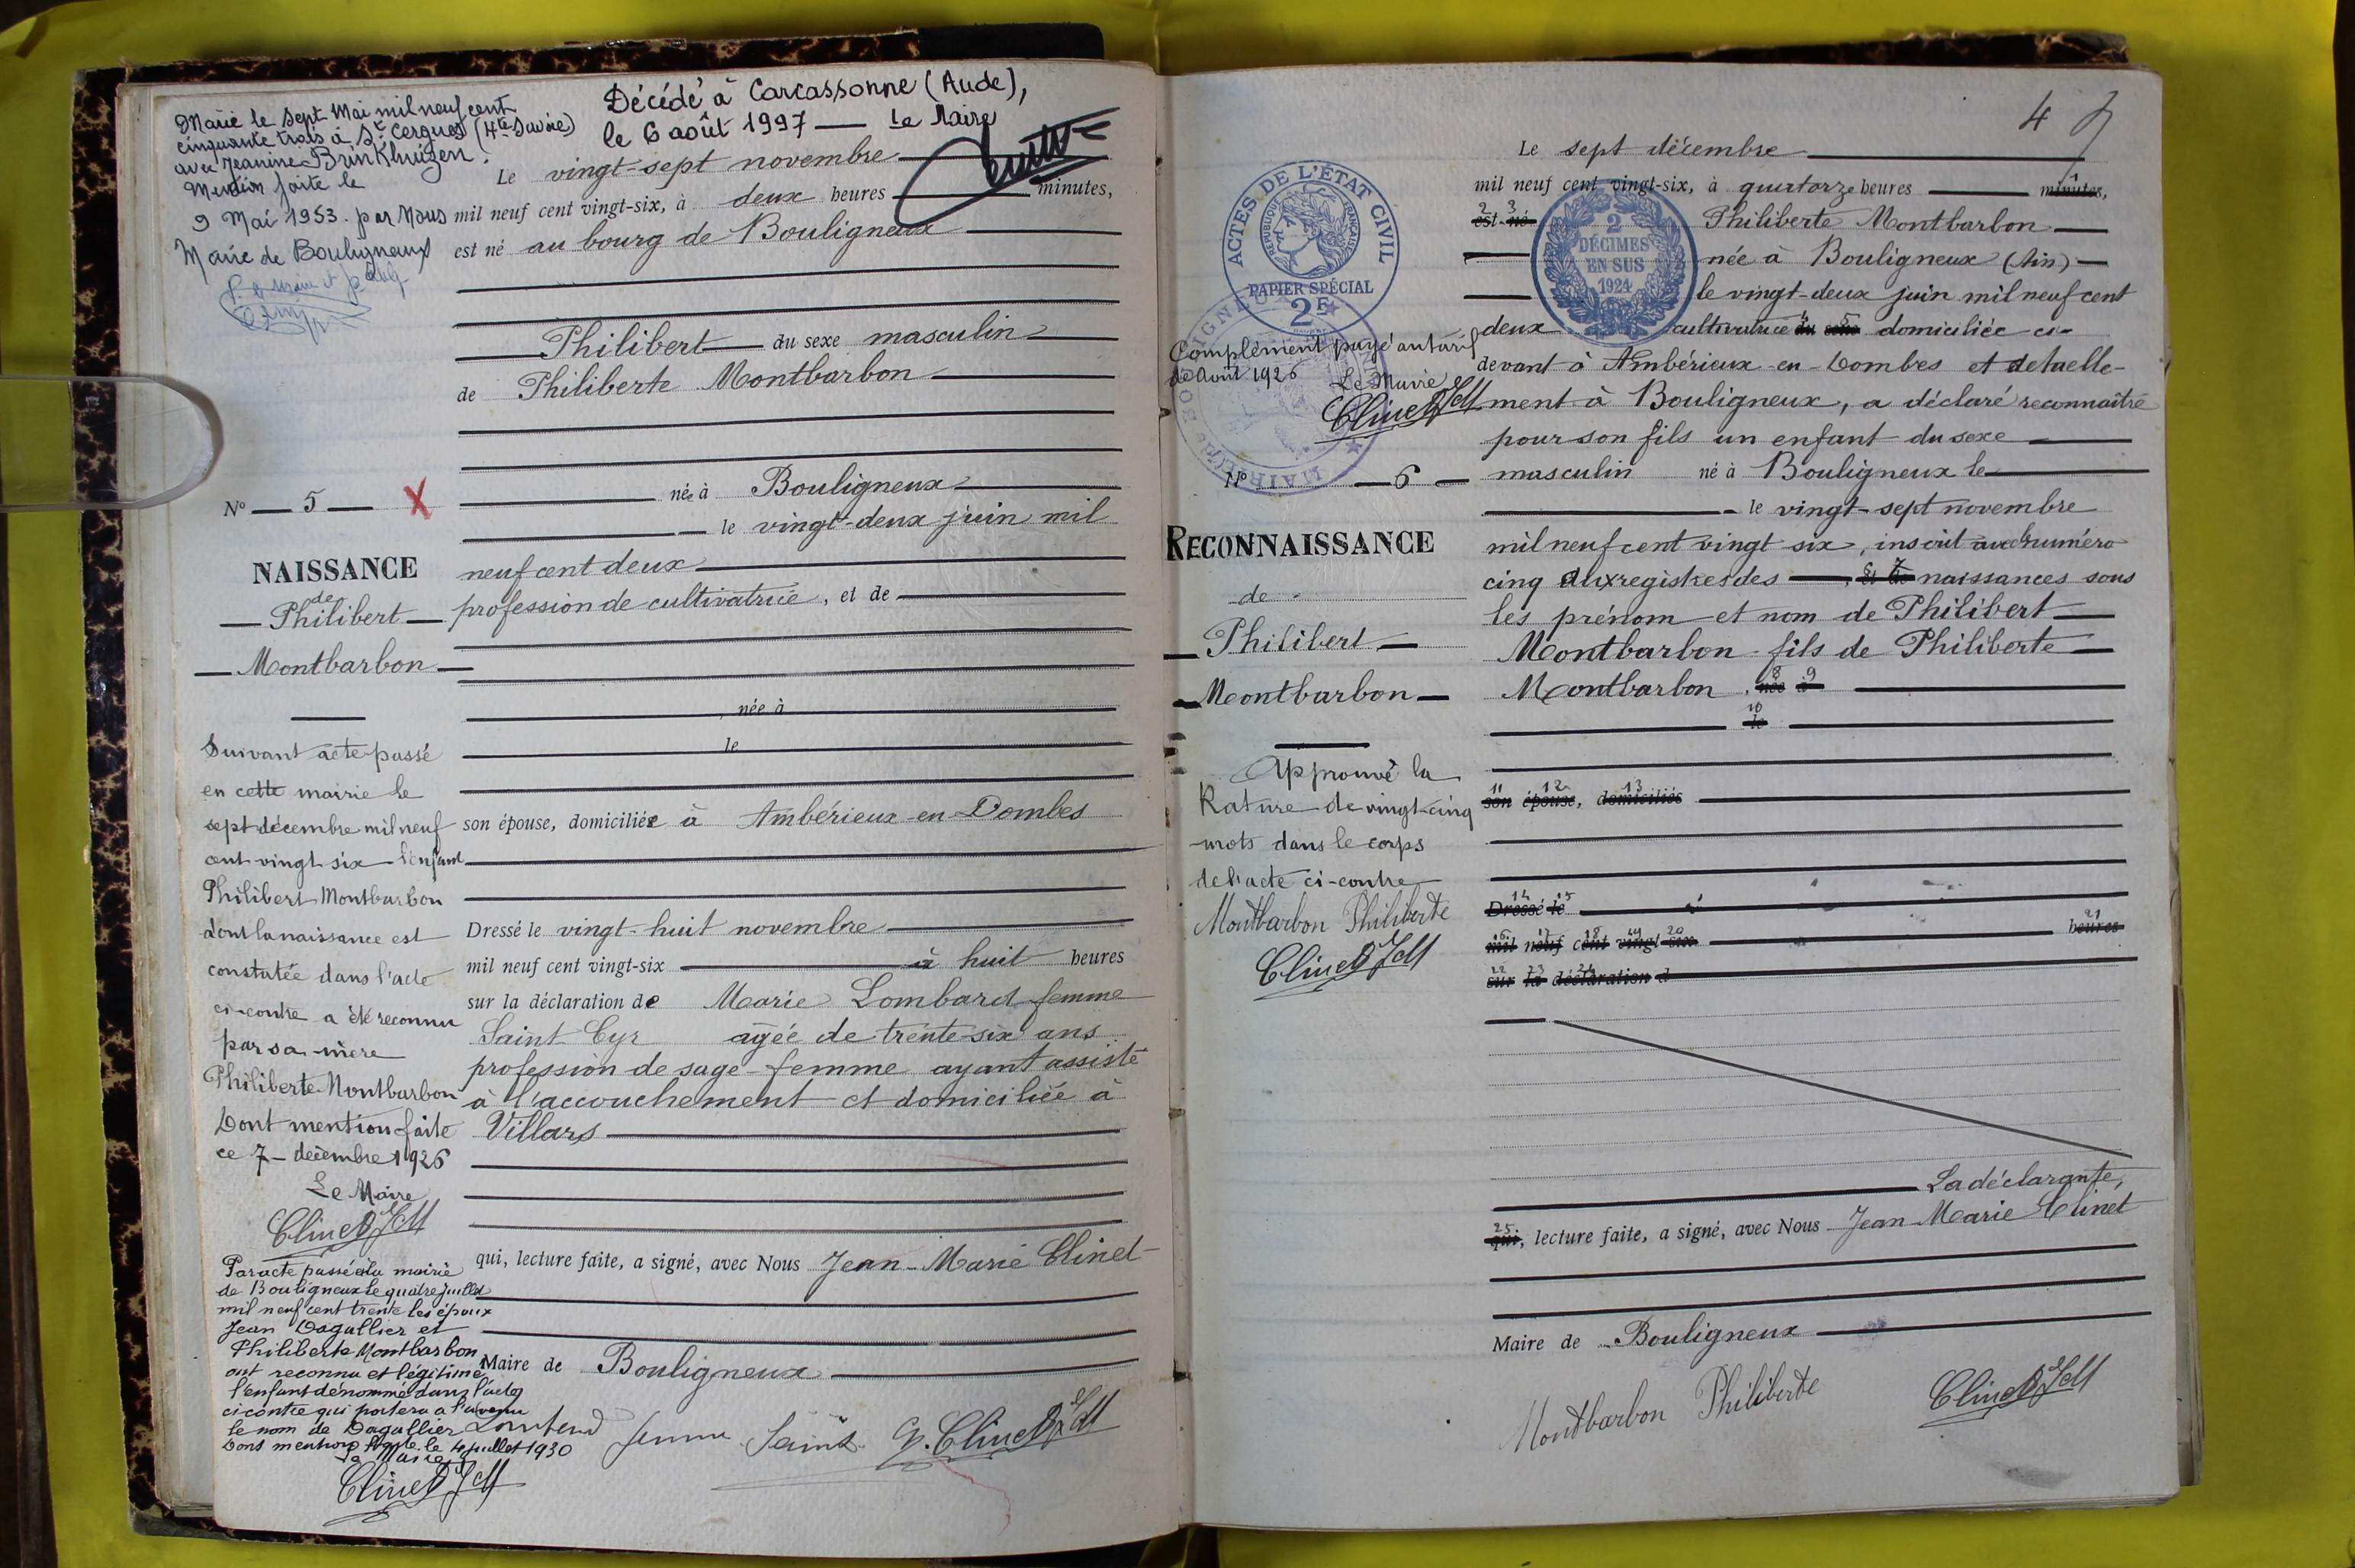 Marié le sept Mai mil neuf cent
cinquante trois à St Cergues (Hte Savoie)
avec Jeanine
Mention faite le
9 Mai 1953. par Nous
Maire de Bouligneux
Décédé à Carcassonne (Aude),
le 6 août 1997 — Le Maire
Le vingt-sept novembre
mil neuf cent vingt-six, à deux heures minutes,
est né au bourg de Bouligneux
Philibert du sexe masculin
de Philiberte Montbarbon
née à Bouligneux
le vingt-deux juin mil
neuf cent deux
profession de cultivatrice, et de
, née à
le
son épouse, domiciliée à Ambérieux-en-Dombes
Dressé le vingt-huit novembre
mil neuf cent vingt-six à huit heures
sur la déclaration de Marie Lombard femme
Saint Cyr agée de trente-six ans
profession de sage-femme ayant assisté
à l'accouchement et domiciliée à
Villars
qui, lecture faite, a signé, avec Nous Jean-Marie Clinet
Maire de Bouligneux
femme Saint
Clinet JM
N° — 5 — X
NAISSANCE
de
— Philibert —
— Montbarbon —
Suivant acte passé
en cette mairie le
sept décembre mil neuf
cent vingt six l'enfant
Philibert Montbarbon
dont la naissance est
constatée dans l'acte
ci-contre a été reconnu
par sa mère
Philiberte Montbarbon
Dont mention faite
ce 7 décembre 1926
Le Maire
Clinet JM
Par acte passé à la mairie
de Bouligneux le quatre juillet
mil neuf cent trente les époux
Jean Dagallier et
Philiberte Montbarbon
ont reconnu et légitimé
l'enfant dénommé dans l'acte
ci contre qui portera a l'avenir
le nom de Dagallier
Dont mention faite le 4 juillet 1930
Le Maire
Clinet JM
4
ACTES DE L'ÉTAT CIVIL
RÉPUBLIQUE FRANÇAISE
PAPIER SPÉCIAL
2F
2
DÉCIMES
EN SUS
1924
Complément payé au tarif
de Août 1926
Le Maire
Clinet JM
N° — 6 —
RECONNAISSANCE
de
— Philibert —
— Montbarbon —
Approuvé la
Rature de vingt-cinq
mots dans le corps
de l'acte ci-contre
Montbarbon Philiberte
Clinet JM
Le sept décembre
mil neuf cent vingt-six, à quatorze heures minutes,
2 3
est né Philiberte Montbarbon
née à Bouligneux (Ain)
le vingt-deux juin mil neuf cent
deux cultivatrice du sexe domiciliée ci-
devant à Ambérieux-en-Dombes et actuelle-
ment à Bouligneux, a déclaré reconnaître
pour son fils un enfant du sexe
masculin né à Bouligneux le
le vingt-sept novembre
mil neuf cent vingt six, inscrit numéro
cinq aux registres des , et de naissances sous
les prénom et nom de Philibert
Montbarbon fils de Philiberte
Montbarbon, née à
8 9
10
le
11 12 13
son épouse, domiciliés
14 15
Dressé le
16 17 18 19 20 21
mil neuf cent vingt-six heures
22 23 24
sur la déclaration d
La déclarante,
25
qui, lecture faite, a signé, avec Nous Jean Marie Clinet
Maire de Bouligneux
Montbarbon Philiberte
Clinet JM